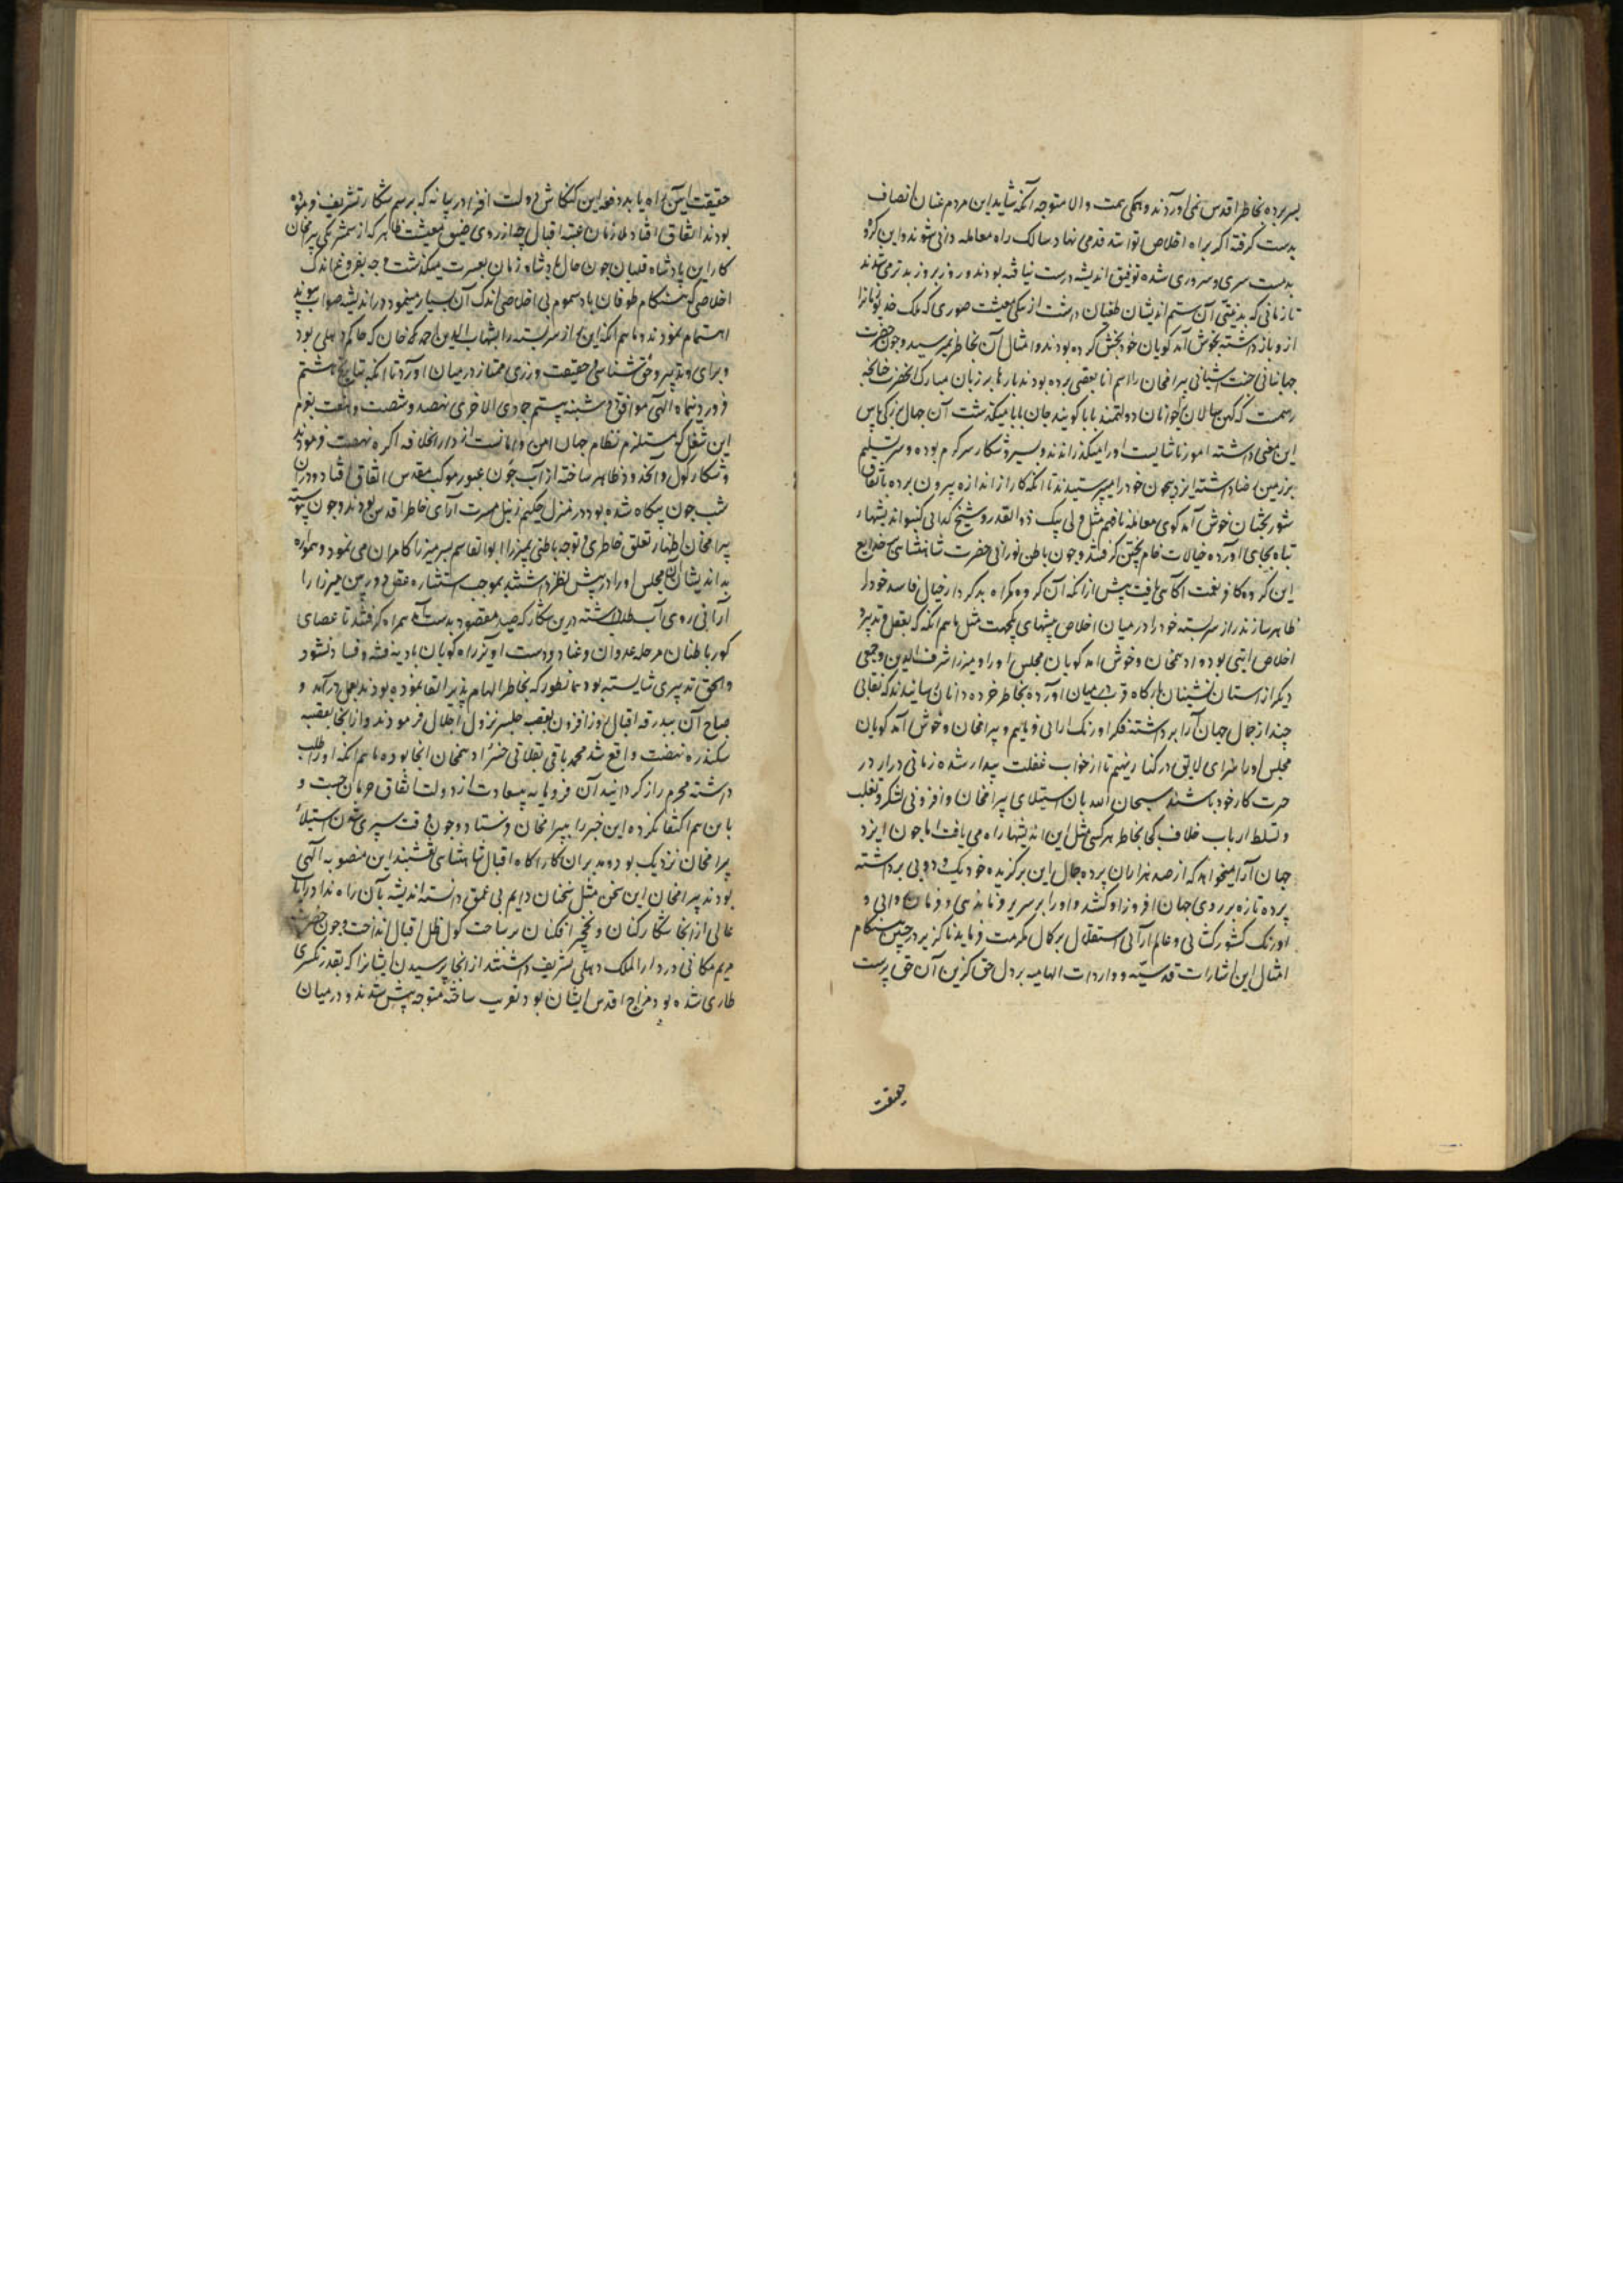 بسر برده بخاطر اقدس نمی آوردند و همگی همت والا متوجه آنکه شاید این مردم عنان انصاف
بدست گرفته اگر براه اخلاص نتوانند قدمی نهاد سالک راه معامله دانی شوند و این گروه
بدمست سری و سروری شده توفیق اندیشه درست نیافته بودند و روز بروز بدتر می شدند
تا زمانی که بدنیتی آن ستم اندیشان طغیان داشت از تنگی معیشت صوری که ملک خدیو زمانرا
ازو باز داشته بخوش آمد گویان خود بخش کرده بودند و امثال آن بخاطر نمیرسید و چون حضرت
جهانبانی جنت آشیانی بیرامخان را اسم اتابیقی برده بودند بارها بر زبان مبارک آنحضرت چنانچه
رسمست که کهن سالان را جوانان دولتمند بابا گویند خان بابا میگذشت آن جهان بزرگی پاس
این معنی داشته امور ناشایست او را میگذراندند و بسیر و شکار سرگرم بوده و سر تسلیم
بر زمین رضا داشته ایزد بیچون خود را میپرستیدند تا آنکه کار از اندازه بیرون برده باتفاق
شوربختان خوش آمد گوی معامله نافهم مثل ولی بیک ذوالقدر و شیخ گدائی کنبو اندیشهای
تباه بجای آورده خیالات خام پختن گرفتند و چون باطن نورانی حضرت شاهنشاهی بر خدایع
این گروه کافر نعمت آگاهی یافت پیش از آنکه آن گروه گمراه بدکردار خیال فاسد خود را
ظاهر سازند راز سربسته خود را در میان اخلاص پیشهای یکجهت مثل ماهم آنکه که بعقل و تدبیر و
اخلاص آیتی بود و ادهمخان و خوش آمد گویان مجلس او را و میرزا شرف الدین و جمعی
دیگر از آستان نشینان بارگاه قرب بمیان آورده بخاطر خرده دانان رسانیدند که نقابی
چند از جمال جهان آرا برداشته فکر اورنگ آرائی فرمائیم و بیرامخان و خوش آمد گویان
مجلس او را سزای لایق در کنار نهیم تا از خواب غفلت بیدار شده زمانی دراز در
حیرت کار خود باشند سبحان الله بآن استیلای بیرامخان و افزونی لشکر و تغلب
و تسلط ارباب خلاف کی بخاطر هر کسی مثل این اندیشها راه می یافت اما چون ایزد
جهان آرا میخواهد که از صد هزاران پرده جمال این برگزیده خود یک دو بی برداشته
پرده تازه بر روی جهان افروز او کشد و او را بر سریر فرماندهی و فرمان روائی و
اورنگ کشور گشائی و عالم آرائی استقلال بر کمال مکرمت فرماید ناگزیر در چنین هنگام
امثال این اشارات قدسیّه و واردات الهامیه بر دل حق گزین آن حق پرست
حقیقت
حقیقت آیین راه یابد دفعه این کنگاش دولت افزا در بیانه که برسم شکار تشریف فرموده
بودند اتفاق افتاد ملازمان عتبه اقبال چه از روی ضیق معیشت ظاهر که از ستم شریکی بیرامخان
کار این پادشاه قلیان چون حال هادشاه زمان بعسرت میگذشت و چه بفروغ اندک
اخلاصی که هنگام طوفان باد سموم بی اخلاصی اندک آن بسیار مینمود در اندیشه صواب پیوند
اهتمام نمودند و ماهم آنکه این راز سربسته را بشهاب الدین احمد خان که حاکم دهلی بود
و برای و تدبیر و حق شناسی و حقیقت ورزی ممتاز در میان آورد تا آنکه بتاریخ هشتم
فروردینماه الهی موافق دوشنبه بیستم جمادی الاخری نهصد و شصت و هفت بعزم
این شغل که مستلزم نظام جهان امن و امانست از دارالخلافه آگره نهضت فرمودند
و شکار کول و آنحدود ظاهر ساخته از آب جون عبور موکب مقدس اتفاق افتاد و در آن
شب چون بیگاه شده بود در منزل حکیم زنبل مسرت آرای خاطر اقدس بودند و چون پیوسته
بیرامخان اظهار تعلق خاطری و توجه باطنی بمیرزا ابوالقاسم پسر میرزا کامران می نمود و همواره
بد اندیشان مجلس او را در پیش نظر داشتند بموجب استشاره عقل دوربین میرزا را
آرائی روی آب طلا داشته درین شکار که صید مقصود بدست آید همراه گرفتند تا عصای
کورباطنان مرحله عدوان و عناد و دست آویز راه گویان بادیه فتنه و فساد نشود
والحق تدبیری شایسته بود همانطور که بخاطر الهام پذیر القا نموده بودند بعمل در آمد و
صباح آن ببدرقه اقبال روز افزون بقصبه جلیسر نزول اجلال فرمودند و از آنجا بقصبه
سکندره نهضت واقع شد محمد باقی بقلانی خسر ادهمخان آنجا بود ماهم آنکه او را طلب
داشته محرم راز گردانید آن فرومایه بیسعادت از دولت اتفاق حرمان جست و
باین هم اکتفا نکرده این خبر را ببیرامخان فرستاد و چون وقت سپری شدن استیلای
بیرامخان نزدیک بود و مدبران کارآگاه اقبال شاهنشاهی نقشبند این منصوبه آلهی
بودند بیرامخان این سخن مثل سخنان دایم بی عمق دانسته اندیشه بآن راه نداد رایات
عالی از آنجا شکار کنان و نخچیر افگنان بر ساحت کول ظل اقبال انداخت و چون حضرت
مریم مکانی در دارالملک دهلی تشریف داشتند از آنجا پرسیدن ایشانرا که بقدر تکسری
طاری شده بود مزاج اقدس ایشان بود تقریب ساخته متوجه پیش شدند و در میان